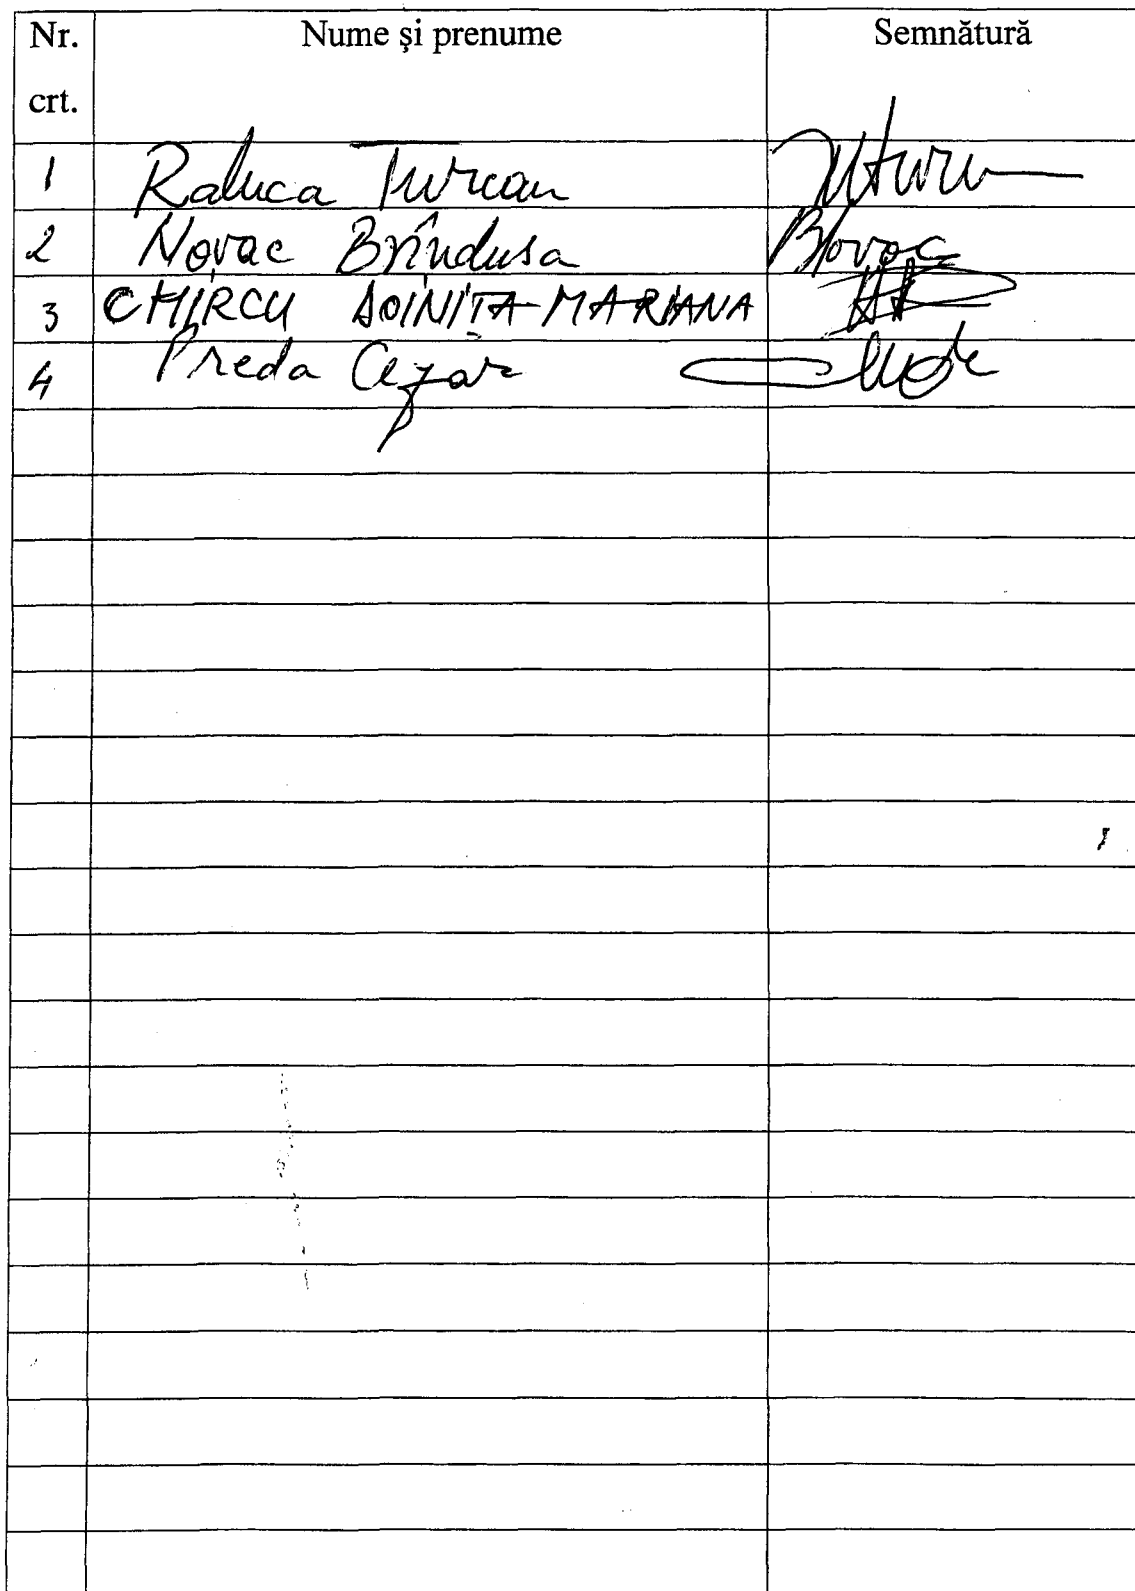 Nr. crt. Nume şi prenume Semnătură
1 Raluca Turcan
2 Novac Brîndusa
3 CHIRCU DOINITA-MARIANA
4 Preda Cezar